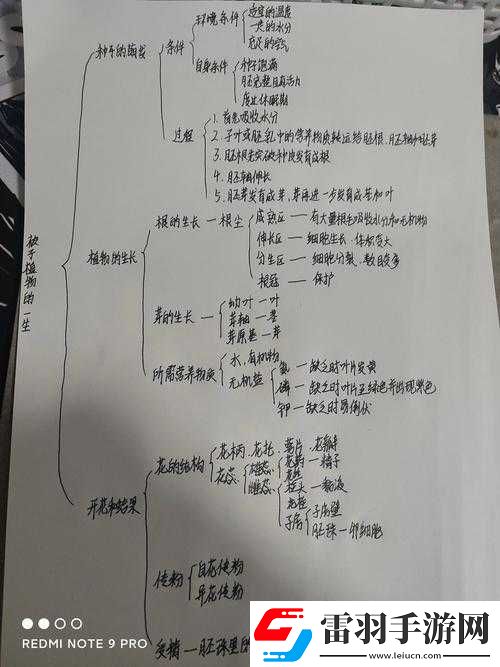 被子植物的一生
种子的萌发
条件
环境条件
适宜的温度
一定的水分
充足的空气
自身条件
种子饱满
胚完整且有活力
度过休眠期
过程
1. 首先吸收水分
2. 子叶或胚乳中的营养物质转运给胚根、胚轴和胚芽
3. 胚根突破种皮发育成根
4. 胚轴伸长
5. 胚芽发育成芽, 芽再进一步发育成茎和叶
植物的生长
根的生长 — 根尖
成熟区 — 有大量根毛吸收水分和无机物
伸长区 — 细胞生长、体积变大
分生区 — 细胞分裂、数目变多
根冠 — 保护
芽的生长
幼叶 — 叶
芽轴 — 茎
芽原基 — 芽
所需营养物质
水、有机物
无机盐
氮 — 缺乏时叶片发黄
磷 — 缺乏时叶片呈绿色并出现紫色
钾 — 缺乏时易倒伏
开花和结果
花的结构
花柄、花托、萼片、花瓣
花蕊
雄蕊
花药 — 精子
花丝
雌蕊
柱头 — 黏液
花柱
子房
子房壁
胚珠 — 卵细胞
传粉
自花传粉
异花传粉
受精 — 胚珠里的
REDMI NOTE 9 PRO
雷羽手游网
www.leiucn.com